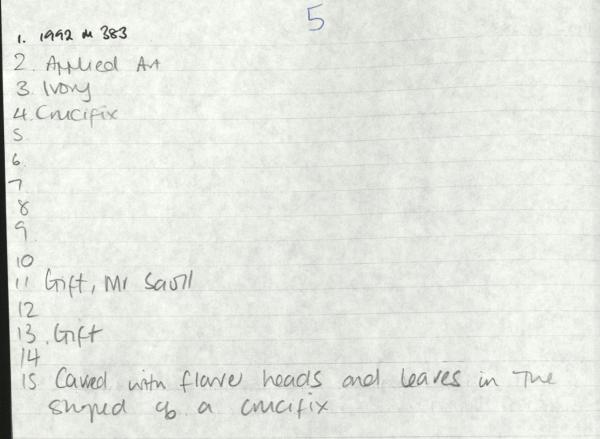 5
1. 1992 M 383
2. Applied Art
3. Ivory
4. Crucifix
5.
6.
7
8
9
10
11 Gift, Mr
12
13. Gift
14
15 Carved with flower heads and leaves in The
shaped of a crucifix